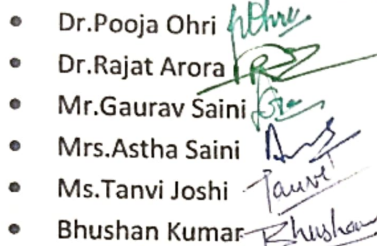 • Dr.Pooja Ohri pOhri
• Dr.Rajat Arora
• Mr.Gaurav Saini
• Mrs.Astha Saini
• Ms.Tanvi Joshi Tanvi
• Bhushan Kumar Bhushan